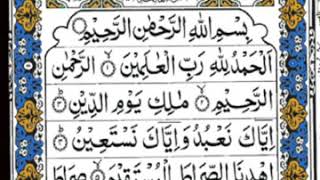 بِسْمِ اللهِ الرَّحْمٰنِ الرَّحِيْمِ
اَلْحَمْدُ لِلّٰهِ رَبِّ الْعٰلَمِيْنَ ۙ﴿۱﴾ الرَّحْمٰنِ
الرَّحِيْمِ ۙ﴿۲﴾ مٰلِكِ يَوْمِ الدِّيْنِ ؕ﴿۳﴾
اِيَّاكَ نَعْبُدُ وَ اِيَّاكَ نَسْتَعِيْنُ ؕ﴿۴﴾
اِهْدِنَا الصِّرَاطَ الْمُسْتَقِيْمَ ۙ﴿۵﴾ صِرَاطَ